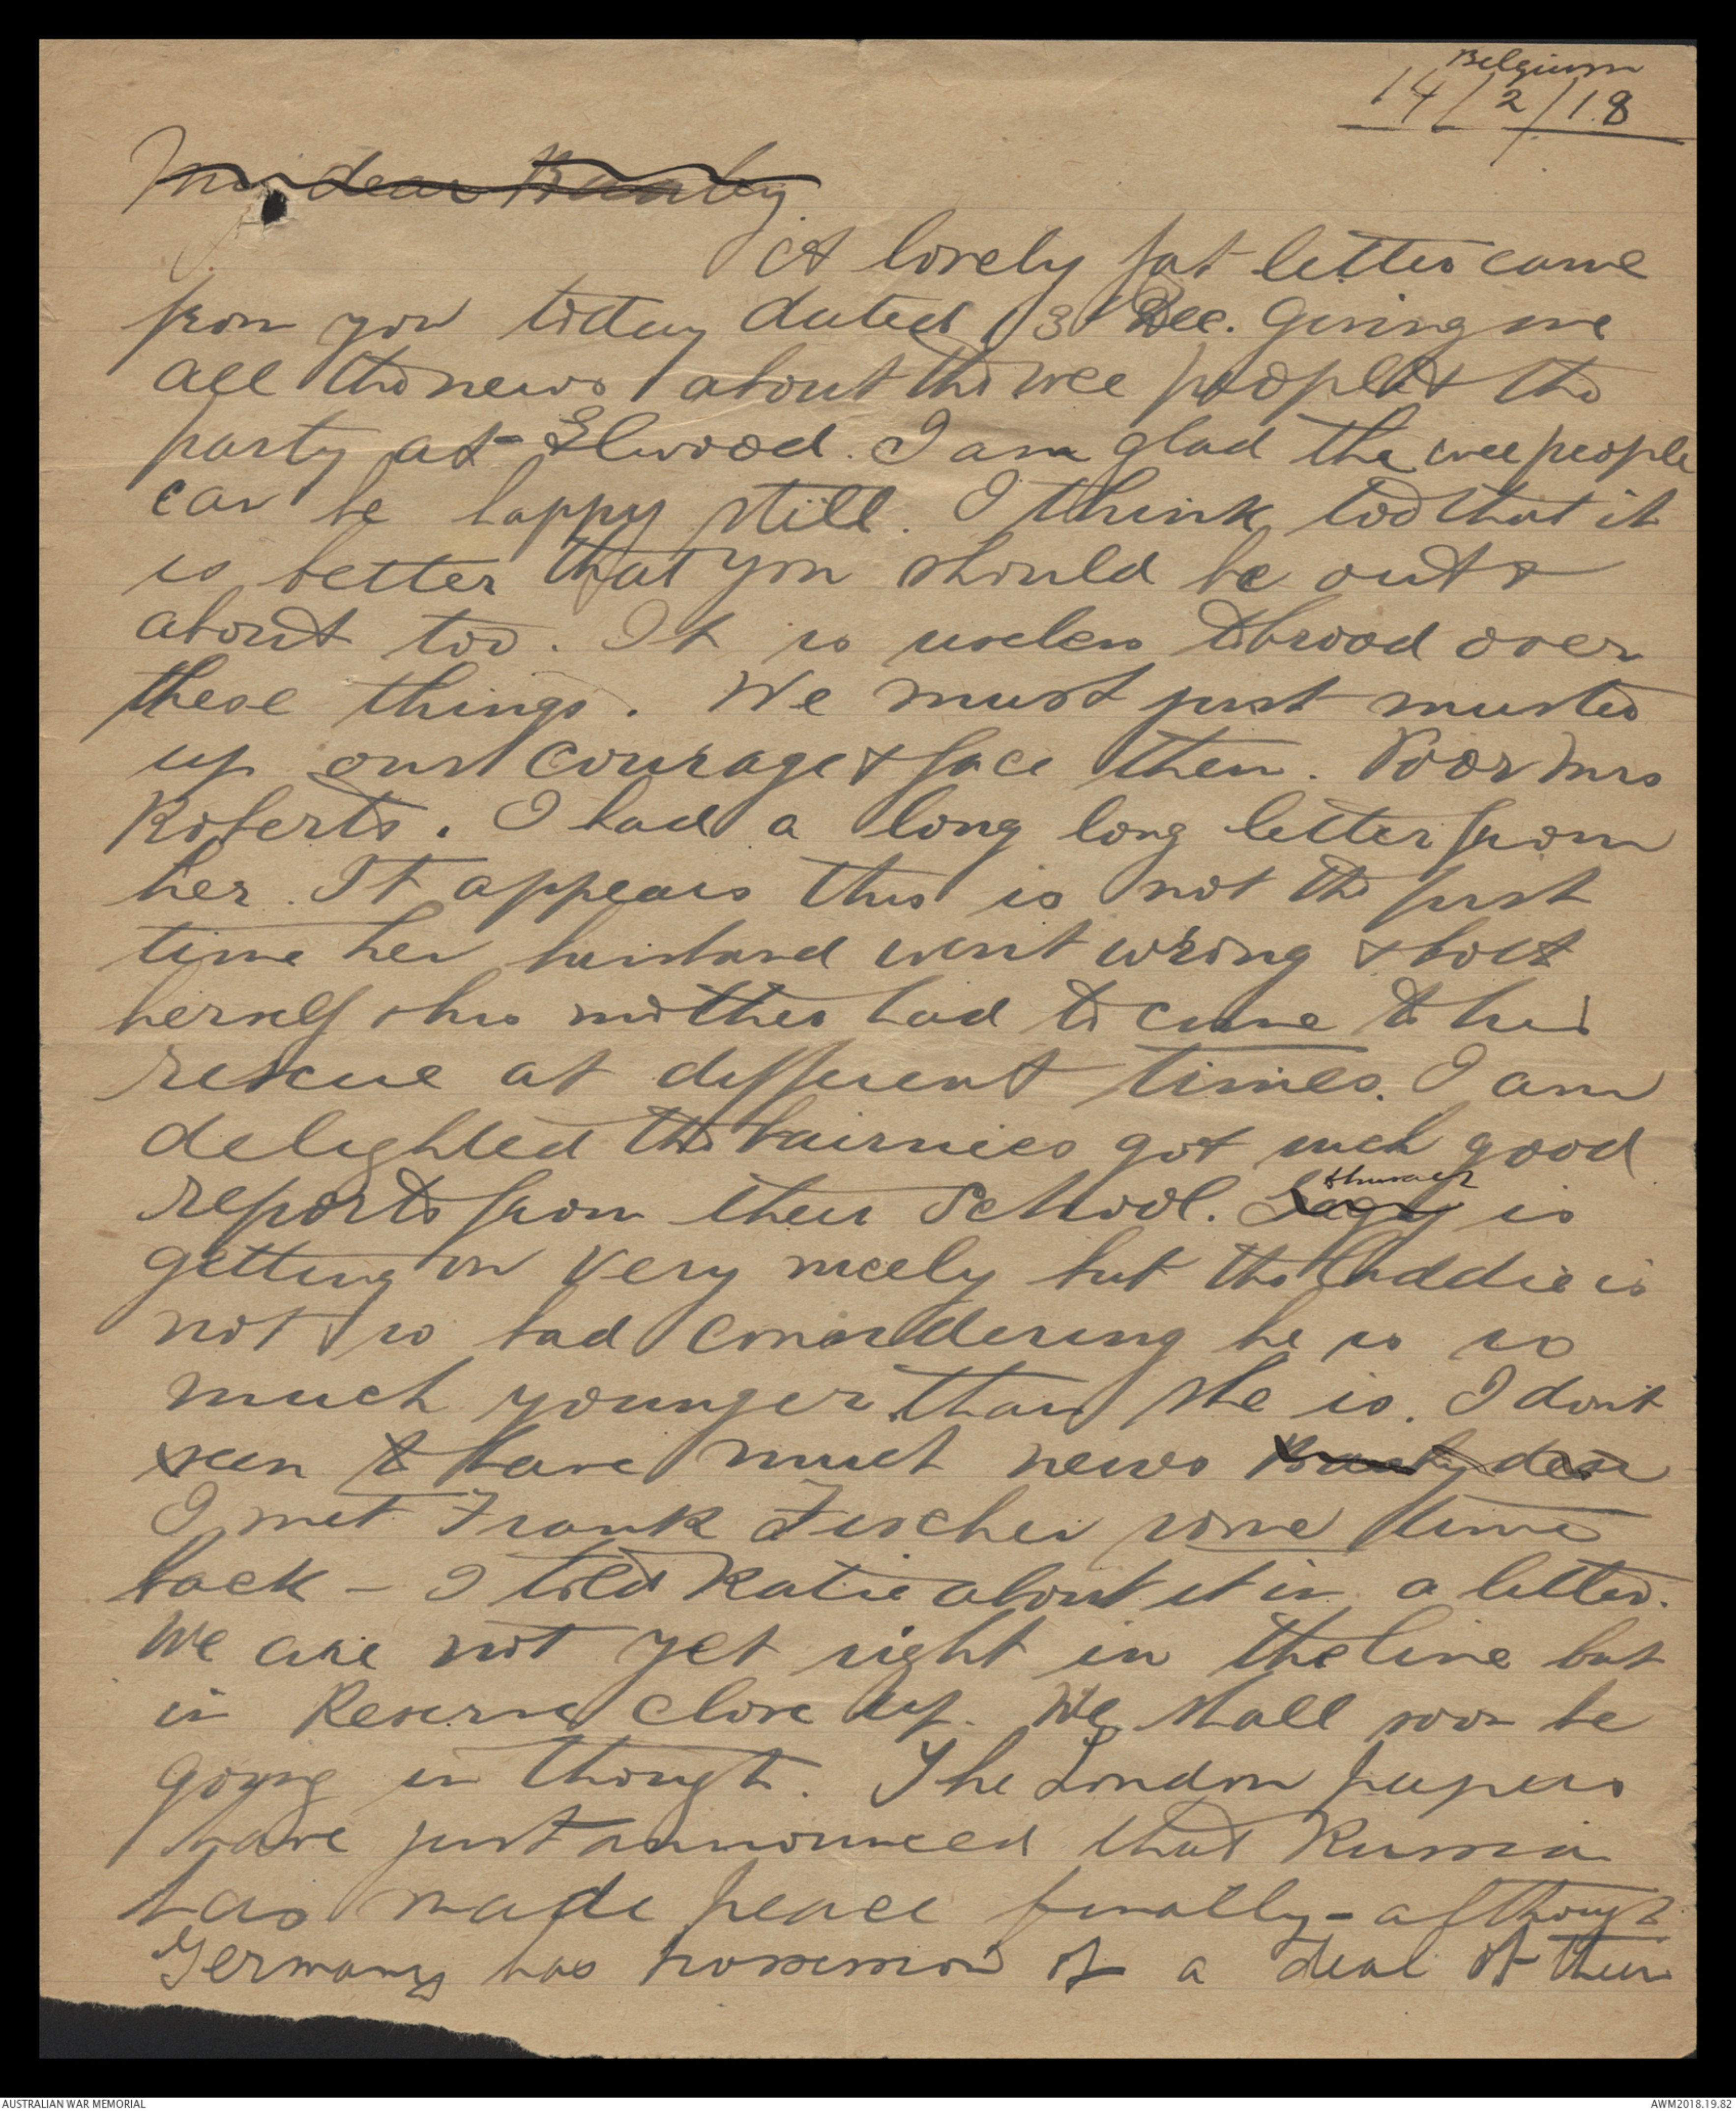 Belgium
14/2/18
My dear Beautey
A lovely fat letter came
from you today dated 13 Dec. Giving me
all the news about the wee people & the
party at Elwood. I am glad the wee people
can be happy still. I think too that it
is better that you should be out &
about too. It is useless to brood over
these things. We must just muster
up our courage & face them. Poor Mrs
Roberts. I had a long long letter from
her. It appears this is not the first
time her husband went wrong & both
herself & his mother had to come to his
rescue at different times. I am
delighted the bairnies got such good
reports from their School.
is
getting on very nicely but the Laddie is
not so bad considering he is so
much younger than she is. I don't
seem to have much news dear
I met Frank Fischer some time
back - I told Katie about it in a letter.
We are not yet right in the line but
in Reserve close up. We shall soon be
going in though. The London papers
have just announced that Russia
has made peace finally - although
Germany has possession of a deal of their
AUSTRALIAN WAR MEMORIAL
AWM2018.19.82